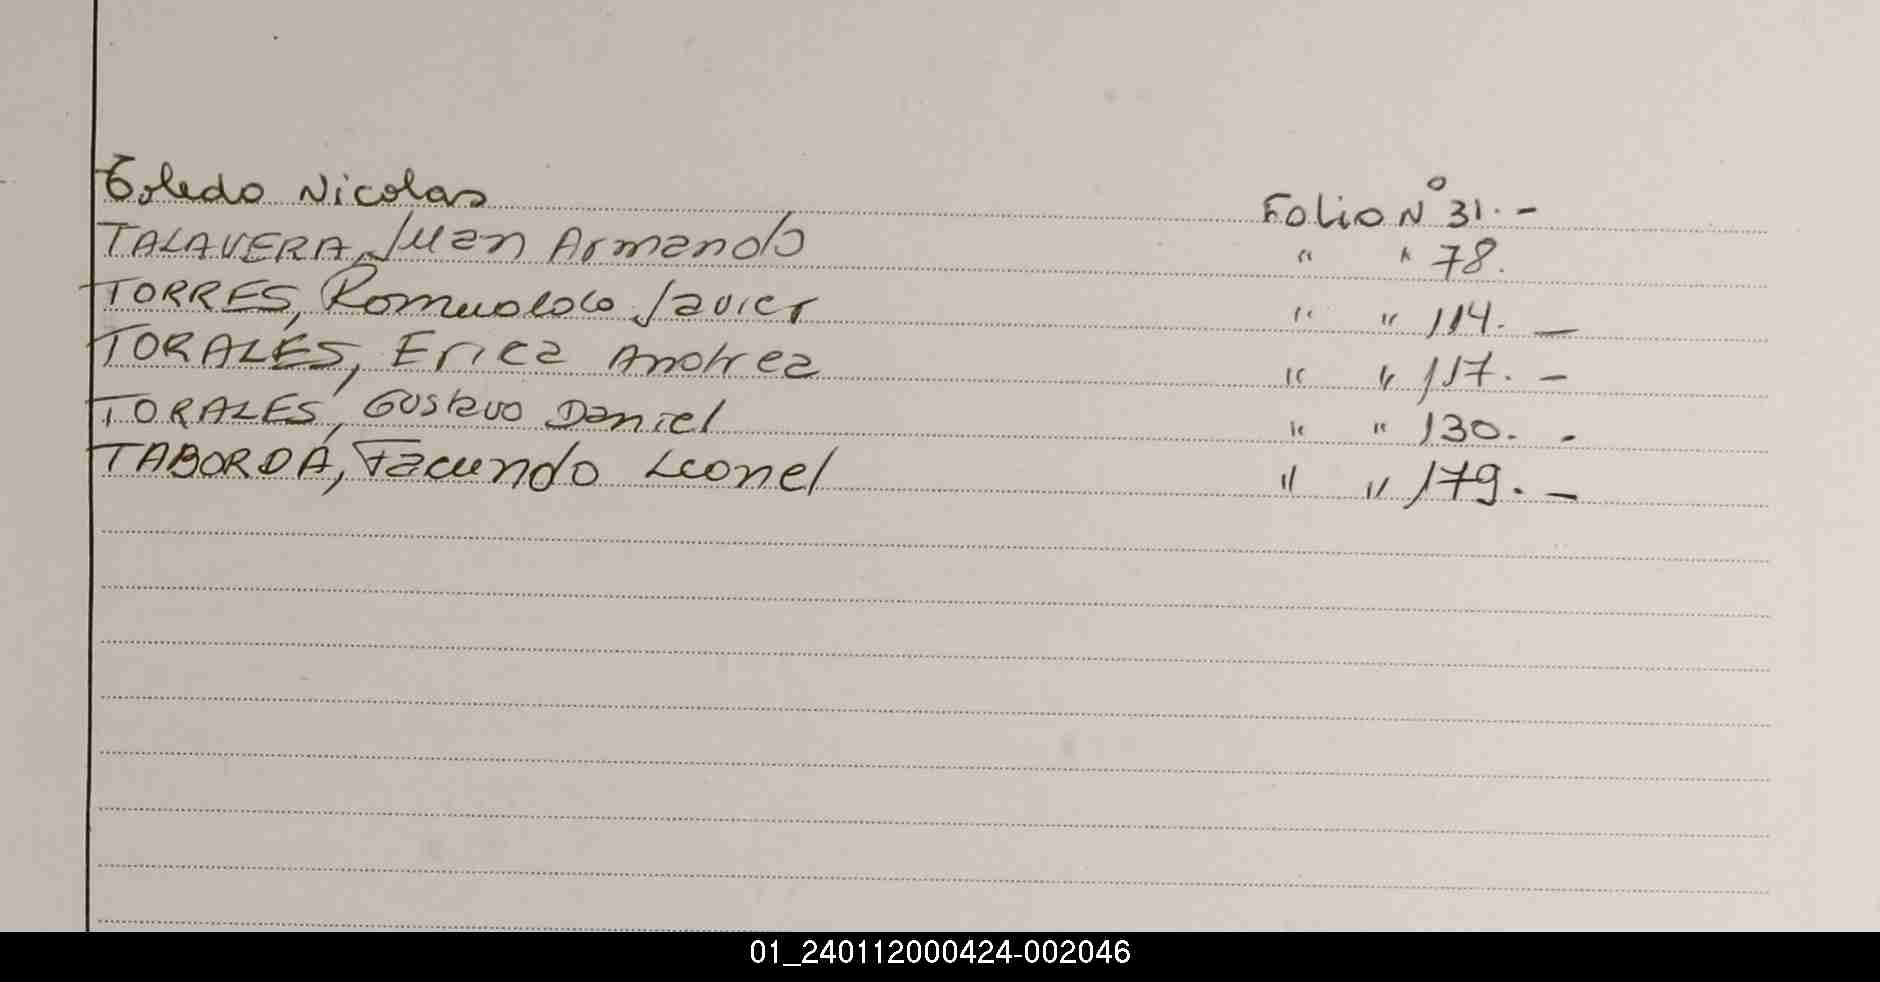 Toledo Nicolas Folio Nº 31.-
TALAVERA, Juan Armando " " 78.
TORRES, Romualdo Javier " " 114. —
TORALES, Erica Andrea " " 117. -
TORALES, Gustavo Daniel " " 130. -
TABORDA, Facundo Leonel " " 179. -
01_240112000424-002046